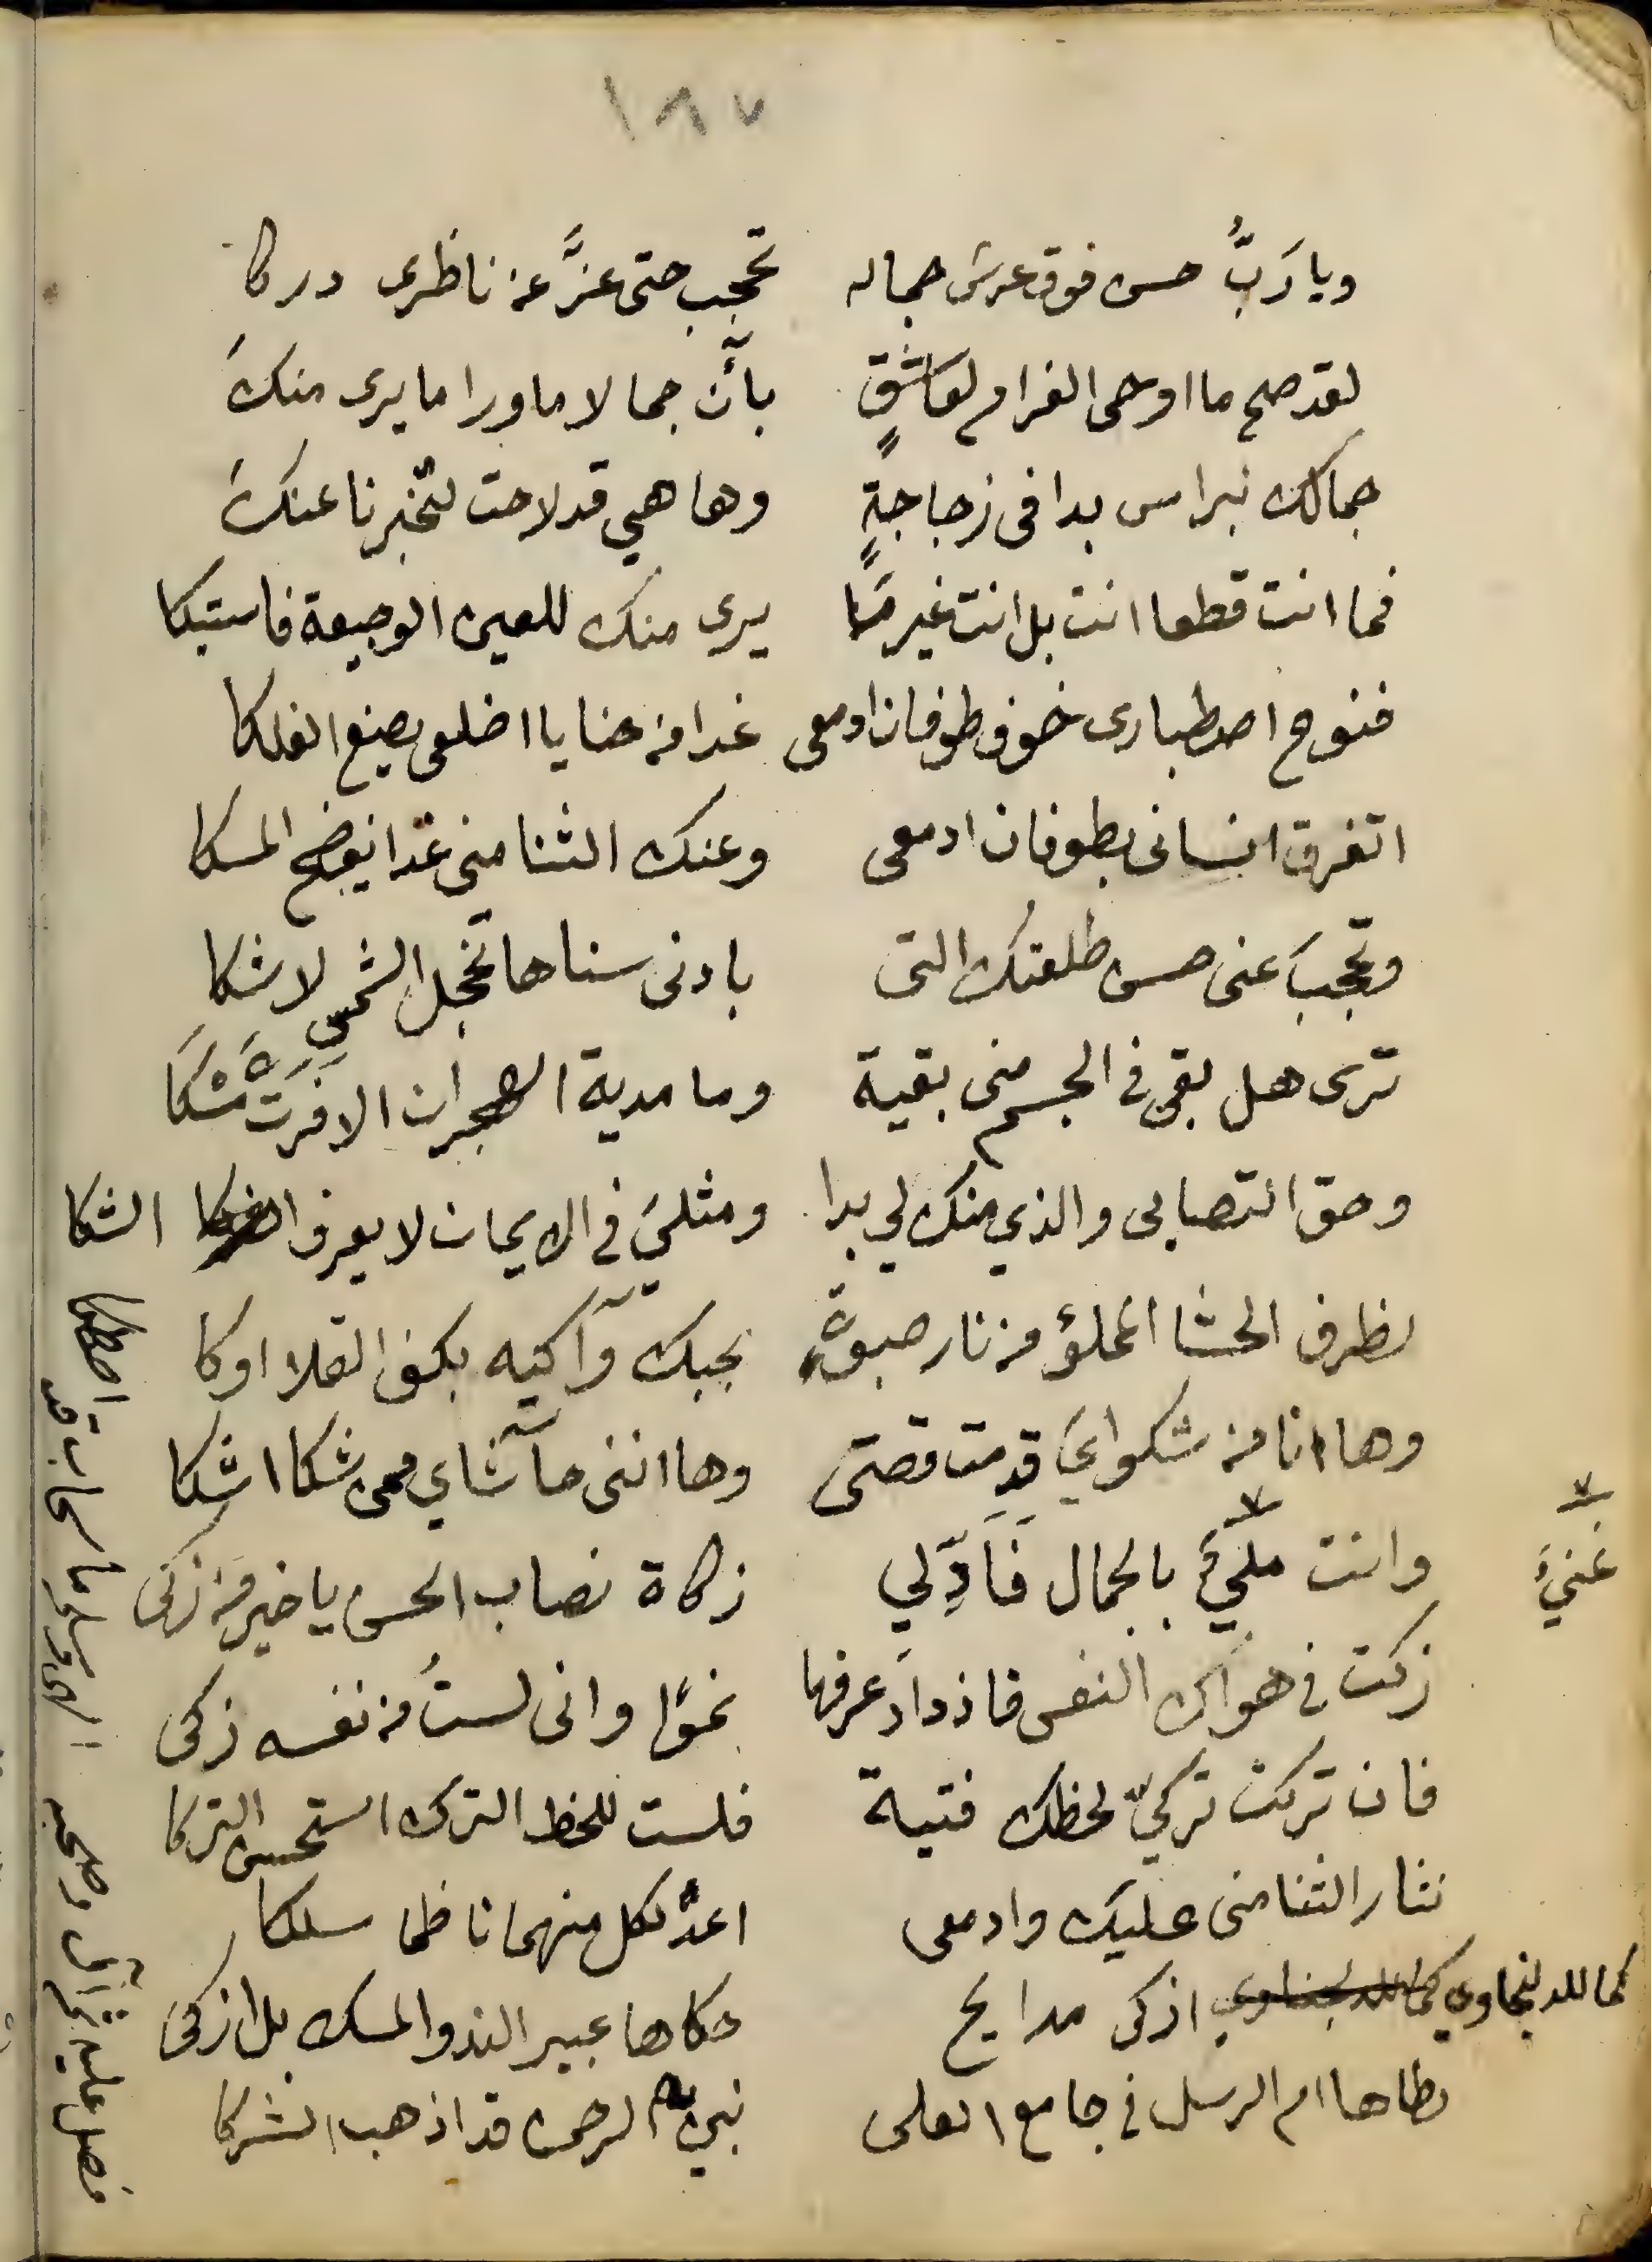 ١٨٧
ويا رَبُّ حسن فوق عرش جماله تحجب حتى عزَّ عن ناظرى دركا
لقد صح ما اوحى الغرام لعاشقٍ بأن جمالا ما ورا ما يرى منكَ
جمالك نبراس بدا فى زجاجةٍ وها هي قد لاحت لتخبرنا عنكَ
فما انت قطعا انت بل انت غير ما يرى منك للعين الوجيعة فاستبكا
فنوح اصطبارى خوف طوفان ادمعى غدا من حنايا اضلعى يصنع الفلكا
اتغرق انسانى بطوفان ادمعى وعنك الثنا منى غدا يفضح المسكا
وتحجبَ عنى حسن طلعتك التى بادنى سناها تخجل الشمس لا شكا
ترى هل بقى فى الجسم منى بقية وما مدية الهجران الا فرت مَسْكَا
وحق التصابى والذي منك لي بدا ومثليَ فى الايمان لا يعرف الشكا
بظرف الحشا المملؤ من نار صبوةٍ بحبك وآكيه بكف القلا اوكا
وها انا من شكوايَ قدمت قصتى وها اننى حاشاي ممن شكا اشكا
وانت مليٌّ بالجمال فَأَدِّ لي زكاة نصاب الحسن يا خير من زكى
غنيٌّ
زكت فى هواك النفس فازداد عرفها نموًا وانى لستُ من نفسه زكى
فان تركت تركيّ لحظك فتية فلست للحظ الترك استحسن التركا
نثار الثنا منى عليك وادمعى اعدَّ لكل منهما ناظما سلكا
كما لله نجاوي اذكى مدايح حكاها عبير الند والمسك بل ازكى
بطاها ام الرسل فى جامع العلى نبيّ الرحمن قد اذهب الشركا
فصل عليه ثم آل وصحبه